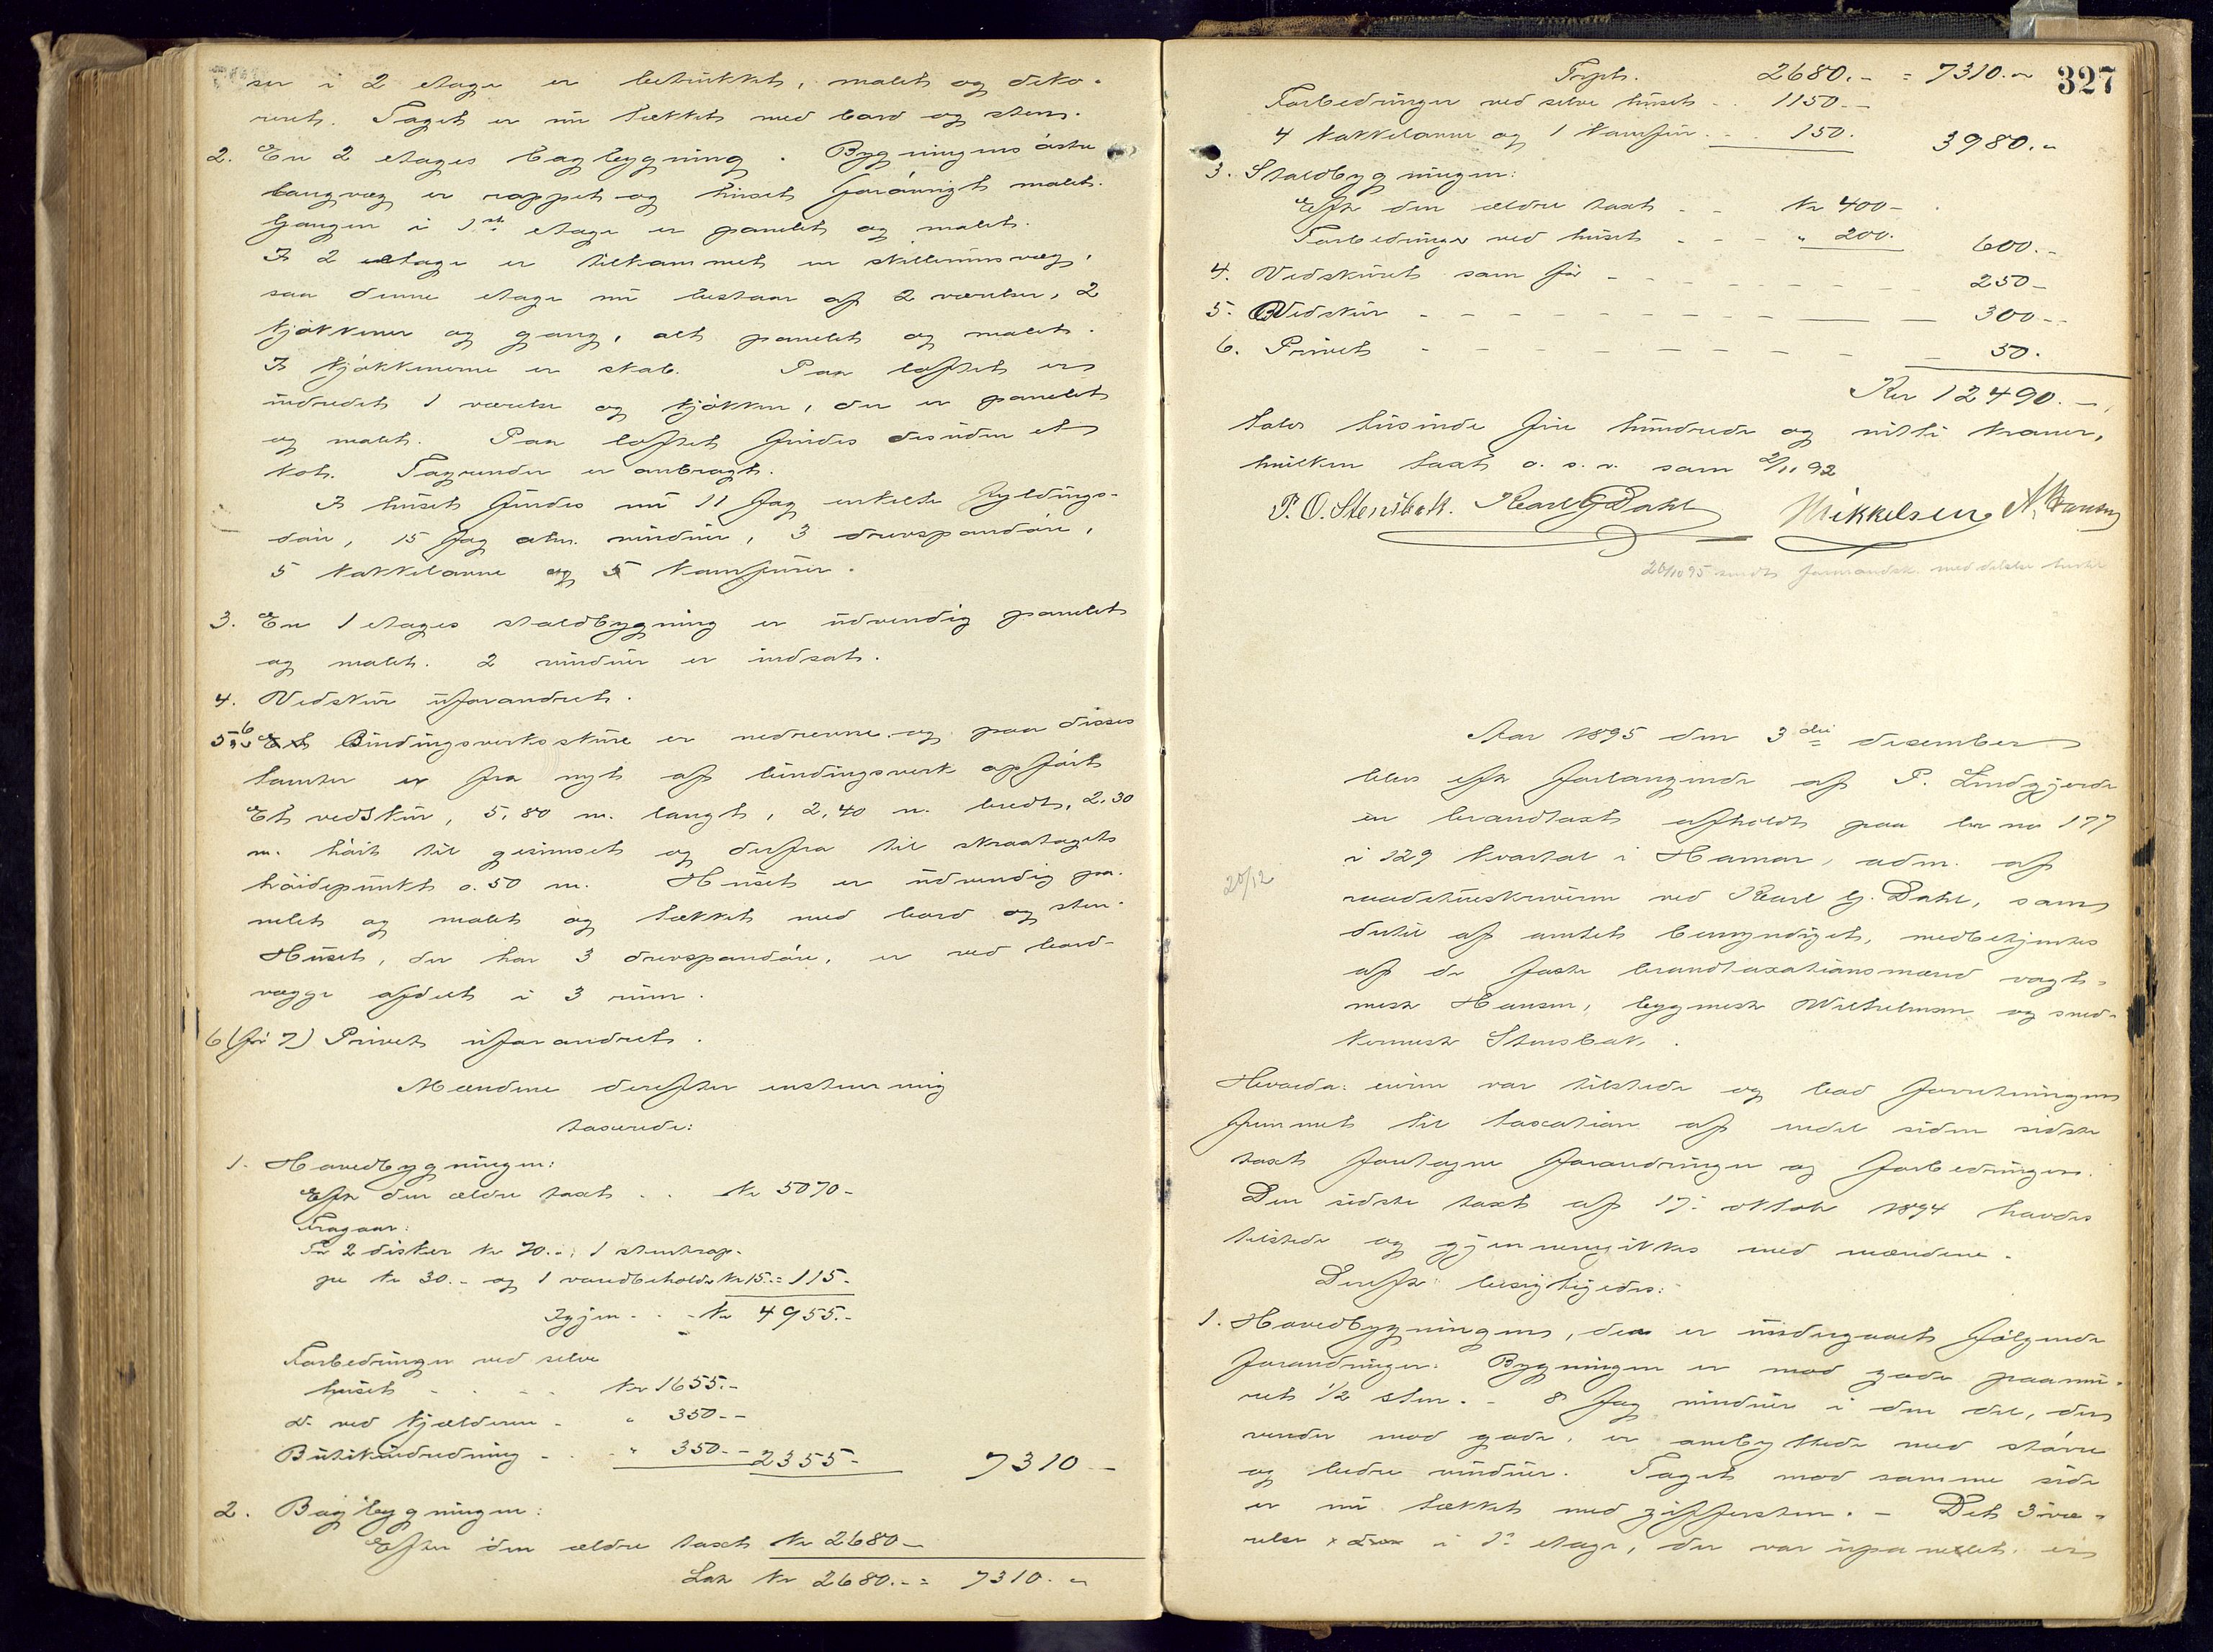 ser i 2 etage er betrukket, malet og deko-
reret. Taget er nu tækket med bord og sten.
2. En 2 etages bagbygning. Bygningens østre
langvæg er rappet og huset forøvrigt malet.
Gangen i 1ste etage er panelet og malet.
I 2 etage er tilkommet en skillerumsvæg,
saa denne etage nu bestaar af 2 værelser, 2
kjøkkener og gang, alt panelet og malet.
I kjøkkenerne er skab. Paa loftet er
indredet 1 værelse og kjøkken, der er panelet
og malet. Paa loftet findes desuden et
kot. Tagrender er anbragt.
I huset findes nu 11 fag enkelte fyldings-
døre, 15 fag alm. vinduer, 3 drevspandøre,
5 kakkelovne og 5 komfurer.
3. En 1 etages staldbygning er udvendig panelet
og malet. 2 vinduer er indsat.
4. Vedskur uforandret.
5, 6 Bindingsverksskure er nedrevne og paa disses
tomter er fra nyt af bindingsverk opført
Et vedskur, 5,80 m. langt, 2,40 m. bredt, 2.30
m. høit til gesimset og derfra til skraatagets
høidepunkt 0.50 m. Huset er udvendig pa-
nelet og malet og tækket med bord og sten.
Huset, der har 3 drevspandøre, er ved bord-
vægge afdelt i 3 rum.
6 (før 7) Privet uforandret.
Mændene derefter enstemmig
taxerede:
1. Hovedbygningen:
Efter den ældre taxt . . Kr 5070-
Fragaar:
For 2 disker kr 70.-, 1 stentrap-
pe kr 30.- og 1 vandbeholder kr 15.- = 115-
Igjen . . - kr 4955.-
Forbedringer ved selve
huset - . . . Kr 1655.-
do ved kjælderen - " 350.-
Butikindredning - . " 350.- 2355- 7310 -
2. Bagbygningen:
Efter den ældre taxt Kr 2680-
Lat Kr 2680.- = 7310.-
Trspt. 2680.- = 7310.- 327
Forbedringer ved selve huset - . 1150.-
4 kakkelovne og 1 komfur . - . 150. 3980.-
3. Staldbygningen:
Efter den ældre taxt - - Kr 400-
Forbedringer ved huset - - - " 200. 600.-
4. Vedskuret som før - - - - - - - 250-
5. Vedskur - - - - - - - 300-
6. Privet - - - - - - - 50.
Kr 12490.-,
tolv tusinde fire hundrede og nitti kroner,
hvilken taxt o. s. v. som 2/11 92
P. O. Stensbak. Karl G Dahl Mikkelsen A. Hansen
26/10 95 sendt formandsk. meddelelse hertil
Aar 1895 den 3die desember
blev efter forlangende af P. Lindgjerde
en brandtaxt afholdt paa br no 177
i 129 kvartal i Hamar, adm. af
20/12
raadstueskriveren ved Karl G. Dahl, som
dertil af amtet bemyndiget, medbetjentes
af de faste brandtaxationsmænd vagt-
mester Hansen, bygmester Wilhelmsen og sned-
kermester Stensbak.
Hvorda: eieren var tilstede og bad forretningen
fremmet til taxation af endel siden sidste
taxt foretagne forandringer og forbedringer.
Den sidste taxt af 17. oktober 1894 havdes
tilstede og gjennemgikkes med mændene.
Derefter besigtigedes:
1. Hovedbygningen, der er undergaaet følgende
forandringer: Bygningen er mod gade paamu-
ret 1/2 sten. - 8 fag vinduer i den del, der
vender mod gade, er ombyttede med større
og bedre vinduer. Taget mod samme side
er nu tækket med ziffersten. - Det 3 væ-
relse i 1. etage, der var upanelet, er